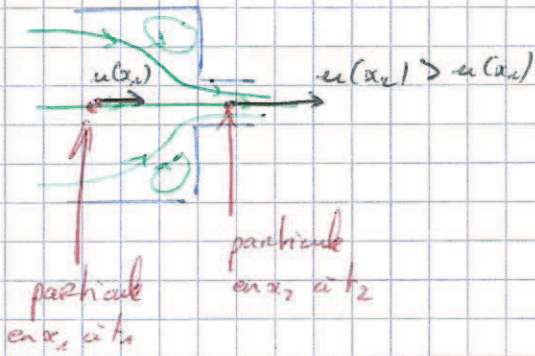 u(x₁)
u(x₂) > u(x₁)
particule
en x₂ à t₂
particule
en x₁ à t₁